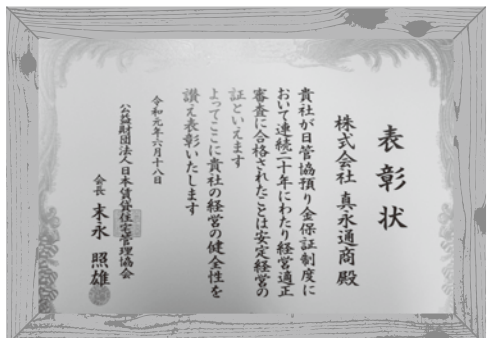 表彰状
株式会社 真永通商 殿
貴社が日管協預り金保証制度に
おいて連続二十年にわたり経営適正
審査に合格されたことは安定経営の
証といえます
よってここに貴社の経営の健全性を
讃え表彰いたします
令和元年六月十八日
公益財団法人日本賃貸住宅管理協会
会長 末永 照雄